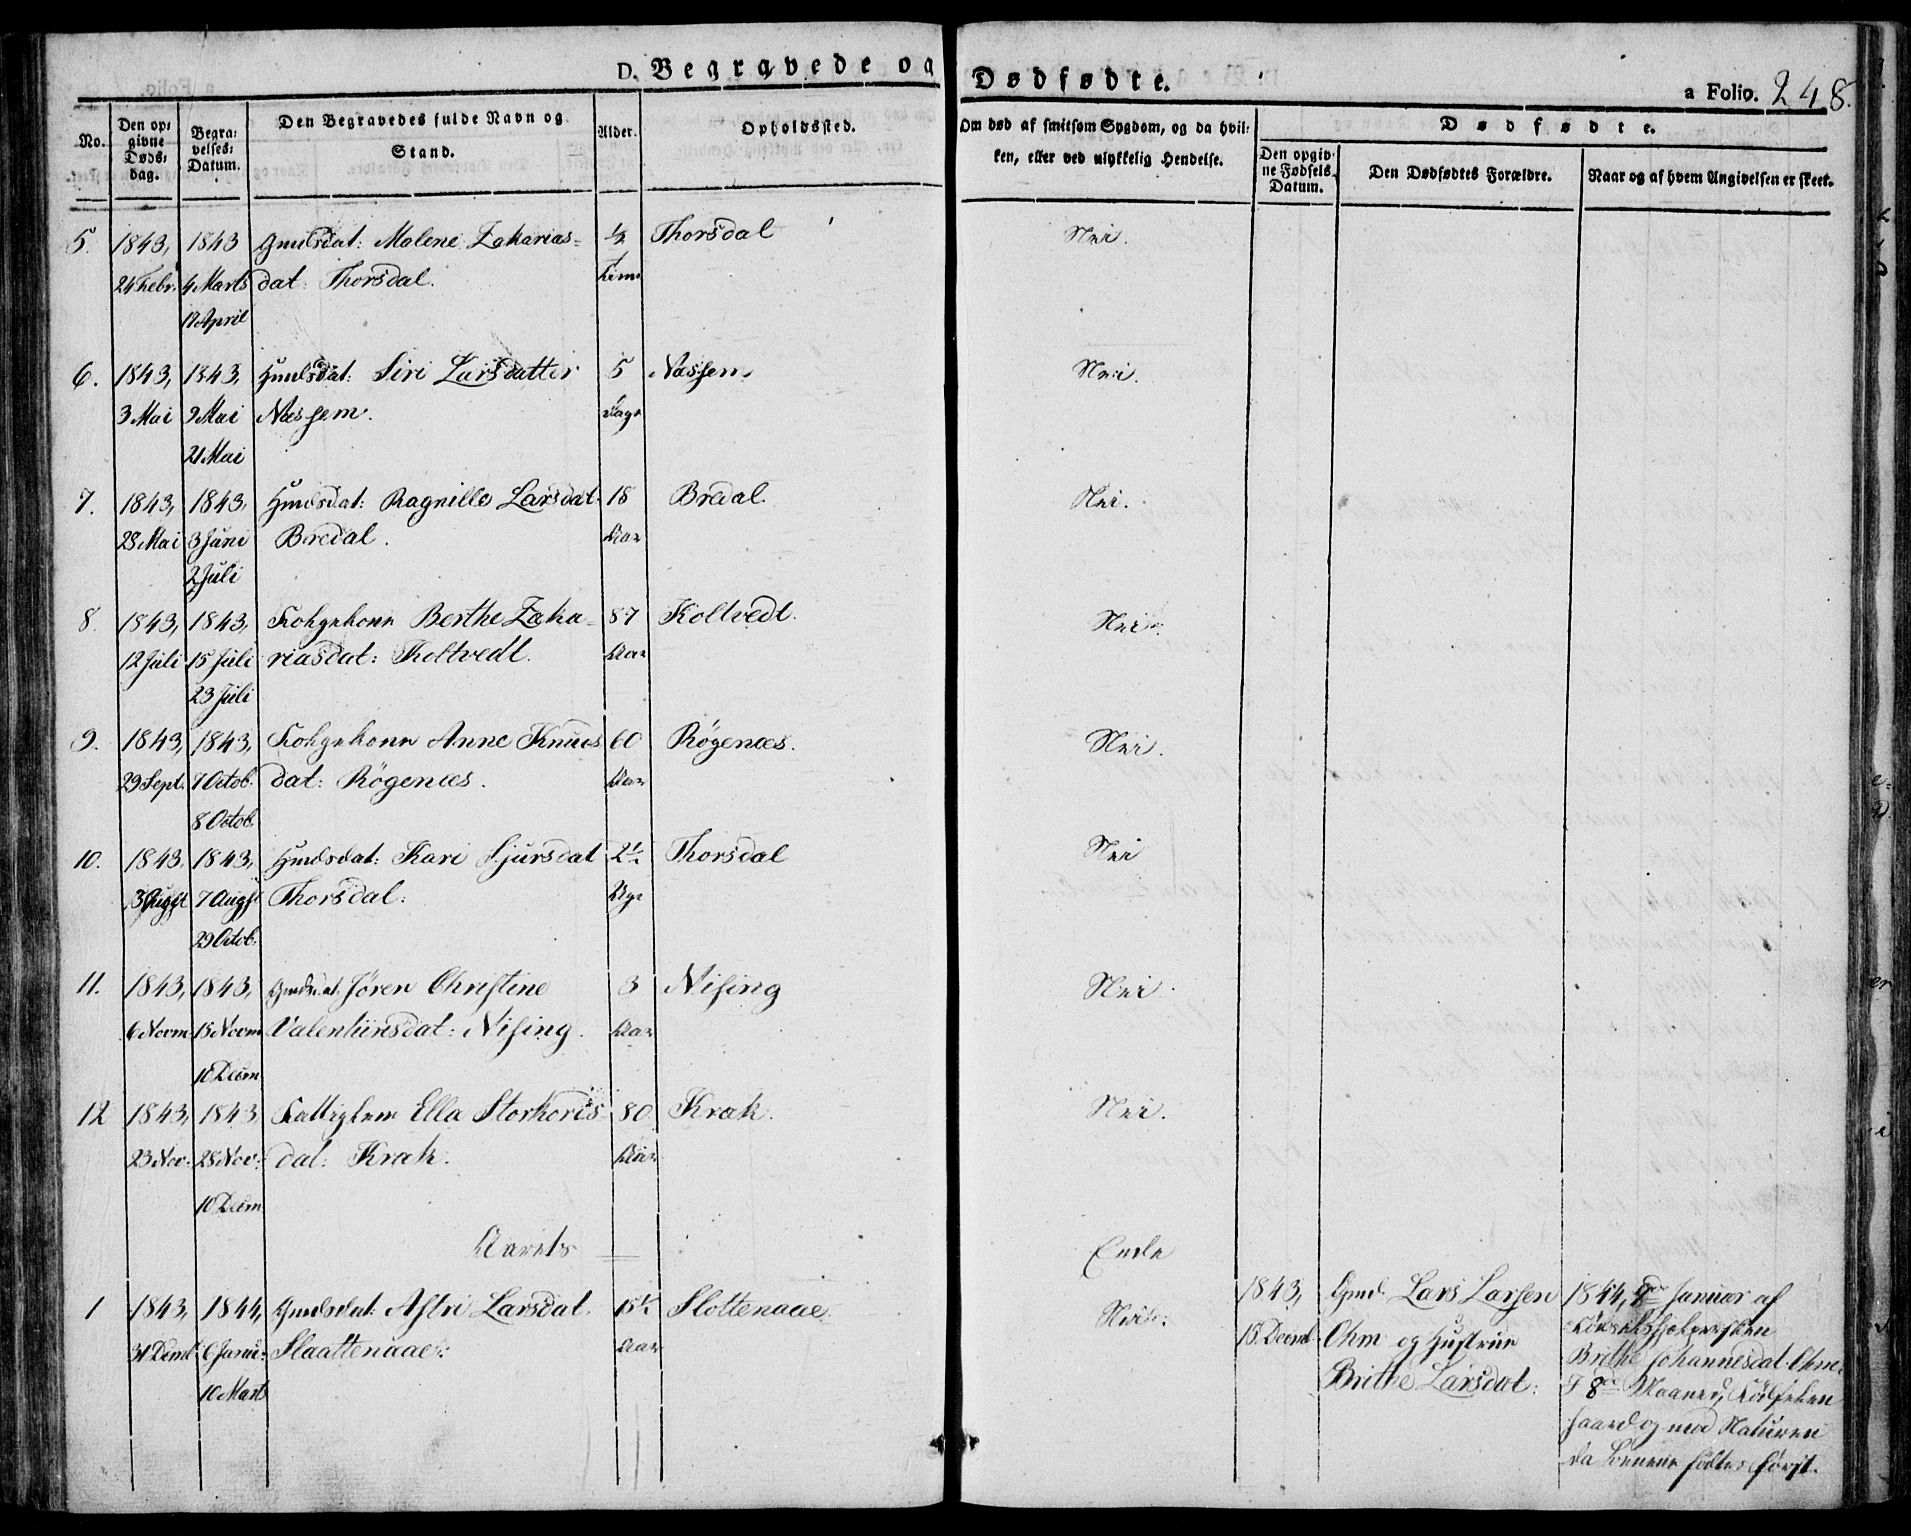 D. Begravede og Dødfødte.
a Folio. 248.
No.
Den op=
givne
Døds=
dag.
Begra=
velses=
Datum.
Den Begravedes fulde Navn og
Stand.
Alder.
Opholdssted.
Om død af smitsom Sygdom, og da hvil=
ken, eller ved ulykkelig Hendelse.
Dødfødte.
Den opgiv=
ne Fødsels
Datum.
Den Dødfødtes Forældre.
Naar og af hvem Angivelsen er skeet.
5. 1843, 1843 Gmdsdat: Malene Zakarias= ½ Thorsdal Nei.
24 Febr. 4 Marts dat: Thorsdal.
17 April
6. 1843, 1843, Gmdsdat: Siri Larsdatter 5 Næssem Nei.
3 Mai 9 Mai Næssem. Dage
21 Mai
7. 1843, 1843, Gmdsdat: Ragnille Larsdat. 18 Bredal. Nei.
28 Mai 3 Juni Bredal. Aar
2 Juli
8. 1843, 1843, Folgekone Berthe Zaka= 87 Koltvedt. Nei.
12 Juli 15 Juli riasdat: Koltvedt. Aar
23 Juli
9. 1843, 1843, Folgekone Anne Knuds 60 Røgenæs. Nei.
29 Sept. 7 Octob. dat: Røgenæs. Aar
8 Octob.
10. 1843, 1843, Gmdsdat: Kari Sjursdat 2½ Thorsdal Nei
3 Augst 7 Augst Thorsdal.
29 Octob.
11. 1843, 1843, Gmdsdat. Jøren Christine 3 Nising Nei.
6 Novm 15 Novm Valentinsdat: Nising. Aar
10 Decm
12 1843, 1843, Fattiglem Ella Storkors= 80 Krak. Nei.
23 Nov: 28 Nov: dat: Krak. Aar
10 Decm
Aarets Ende
1 1843, 1844, Gmdsdat: Astri Larsdat. 15½ Slottenaae. Nei.
31 Decmb 6 Janu: Slaattenaae: Aar
10 Marts
1843,
15 Decmb
Gmd. Lars Larsen
Ohm og Hustrue
Brithe Larsdat:
1844, 8de Januar af
Fødselshjelpersken
Brithe Johannesdat. Ohm.
I 8de Maaned, Fødselen
haard og mod Naturen
da Benene fødtes først.